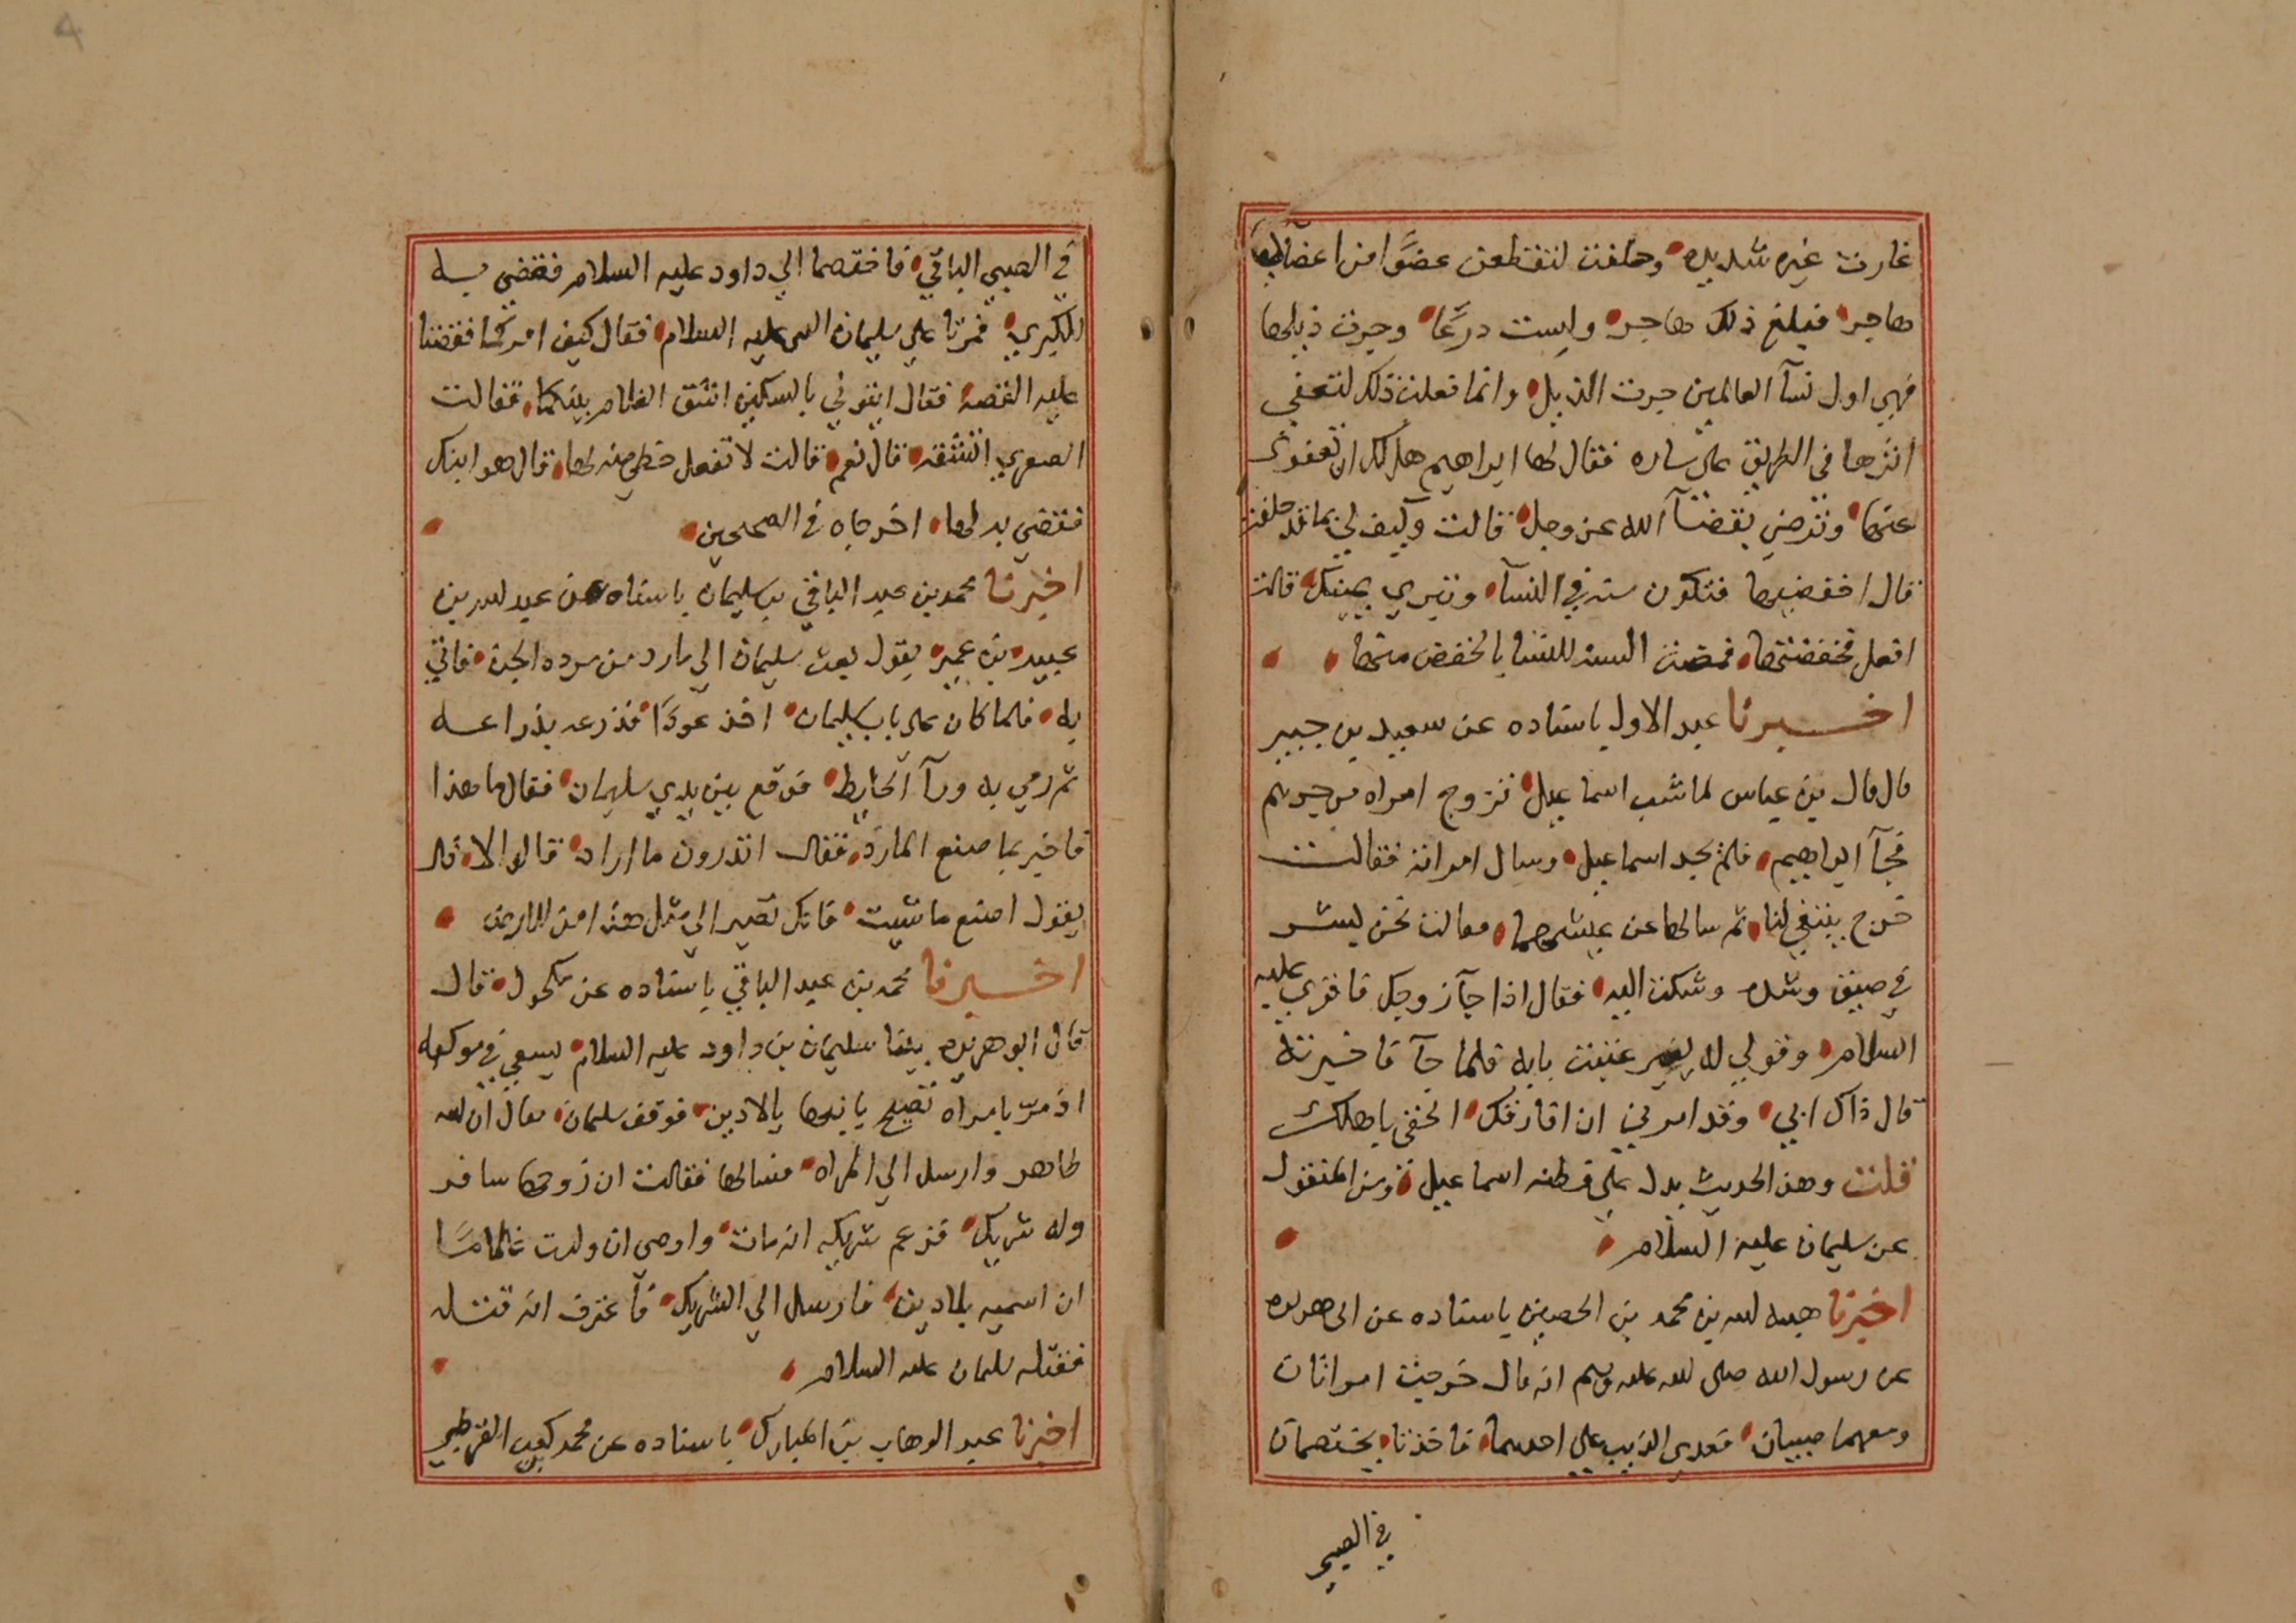 غارت غيره شديده وحلفت لتقطعن عضوا من اعضآ
هاجر فبلغ ذلك هاجر ولبست درعا وجرت ذيلها
فهي اول نسآ العالمين جرت الذيل وانما فعلت ذلك لتعفي
اثرها في الطريق على ساره فقال لها ابراهيم هل لك ان تعفوى
عنها وترضي بقضآ الله عز وجل قالت وكيف لي بما قد حلفت
قال اخفضيها فتكون سنه في النسآ وتبري يمينك قالت
افعل فخفضتها فمضت السنه للنسا بالخفض منها
اخبرنا عبد الاول باسناده عن سعيد بن جبير
قال قال بن عباس لما شب اسماعيل تزوج امراه من جرهم
فجآ ابراهيم فلم يجد اسماعيل وسال امراته فقالت
خرج يبتغي لنا ثم سالها عن عيشهما فقالت نحن بشر
في ضيق وشده وشكت اليه فقال اذا جآ زوجك فاقري عليه
السلام وقولي له يغير عتبت بابه فلما جآ فاخبرته
قال ذاك ابي وقد امرني ان افارقك الحقي باهلك
قلت وهذا الحديث يدل على فطنه اسماعيل ومن المنقول
عن سليمان عليه السلام
اخبرنا هبه الله بن محمد بن الحصين باسناده عن ابى هريره
عن رسول الله صلى الله عليه وسلم انه قال خرجت امراتان
ومعهما صبيان فعدى الذيب على احدهما فاخذتا يختصمان
في الصبى
في الصبي الباقي فاختصما الي داود عليه السلام فقضى به
للكبري فمرتا علي سليمان النبى عليه السلام فقال كيف امركما فقصتا
عليه القصه فقال ايتوني بالسكين اشق الغلام بينكما فقالت
الصغري اتشقه قال نعم قالت لا تفعل حظي منه لها قال هو ابنك
فقضي به لها اخرجاه في الصحيحين
اخبرنا محمد بن عبد الباقي بن سليمان باسناده عن عبد الله بن
عبيد بن عمير يقول بعث سليمان الي مارد من مرده الجن فاتي
به فلما كان على باب سليمان اخذ عودا فذرعه بذراعه
ثم رمي به ورآ الحايط فوقع بين يدي سليمان فقال ما هذا
فاخبر بما صنع المارد فقال اتدرون ما اراد قالوا لا قال
يقول اصنع ما شيت فانك تصير الي مثل هذا من الارض
اخبرنا محمد بن عبد الباقي باسناده عن مكحول قال
قال ابو هريره بينما سليمان بن داود عليه السلام يسعي في موكبه
اذ مر بامراه تصيح بابنها يا لادين فوقف سليمان فقال ان الله
ظاهر وارسل الي المراه فسالها فقالت ان زوجها سافر
وله شريك فزعم شريكه انه مات واوصي ان ولدت غلاما
ان اسميه بلادين فارسل الي الشريك فاعترف انه قتله
فقتله سليمان عليه السلام
اخبرنا عبد الوهاب بن المبارك باسناده عن محمد بن كعب القرظي
4